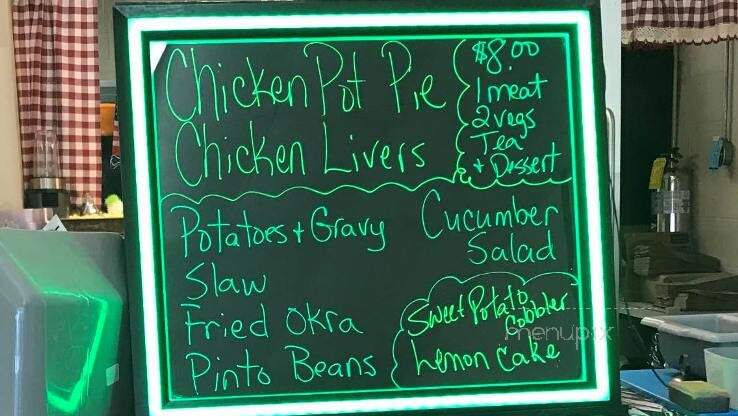 Chicken Pot Pie
Chicken Livers
$8.00
1 meat
2 vegs
Tea
+ Dissert
Potatoes + Gravy
Slaw
Fried Okra
Pinto Beans
Cucumber
Salad
Sweet Potato
Cobbler
Lemon Cake
menupix